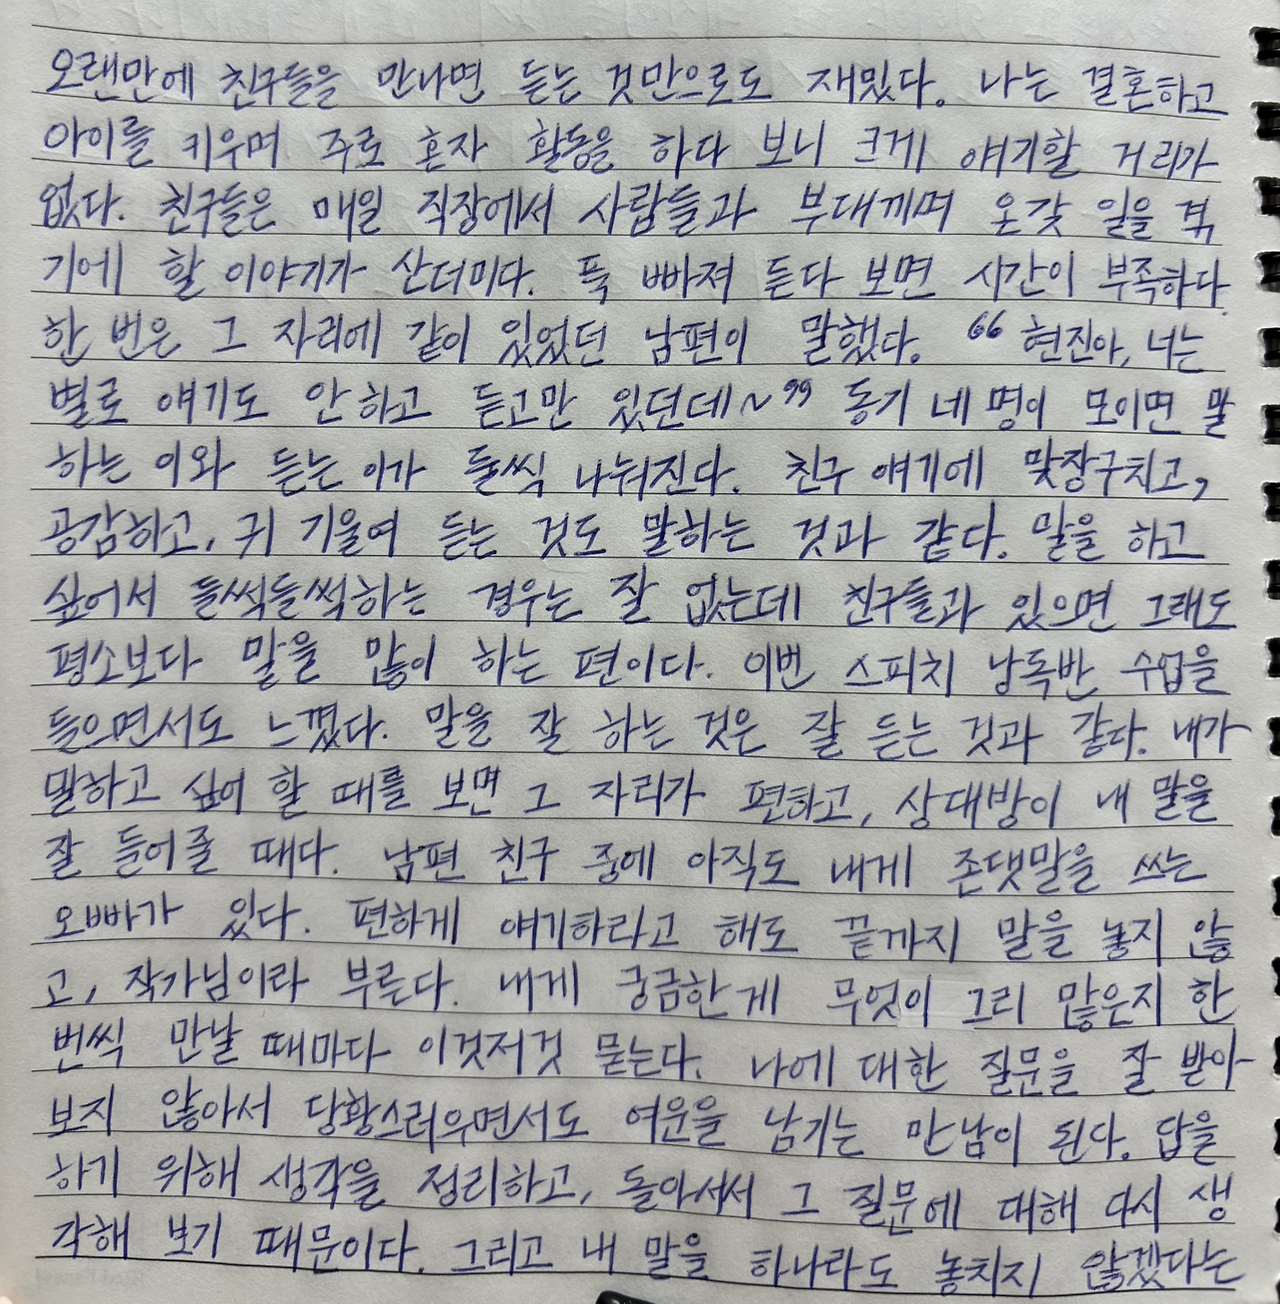 오랜만에 친구들을 만나면 듣는 것만으로도 재밌다. 나는 결혼하고
아이를 키우며 주로 혼자 활동을 하다 보니 크게 얘기할 거리가
없다. 친구들은 매일 직장에서 사람들과 부대끼며 온갖 일을 겪
기에 할 이야기가 산더미다. 푹 빠져 듣다 보면 시간이 부족하다.
한 번은 그 자리에 같이 있었던 남편이 말했다. “현진아, 너는
별로 얘기도 안 하고 듣고만 있던데~” 동기 네 명이 모이면 말
하는 이와 듣는 이가 둘씩 나눠진다. 친구 얘기에 맞장구치고,
공감하고, 귀 기울여 듣는 것도 말하는 것과 같다. 말을 하고
싶어서 들썩들썩하는 경우는 잘 없는데 친구들과 있으면 그래도
평소보다 말을 많이 하는 편이다. 이번 스피치 낭독반 수업을
들으면서도 느꼈다. 말을 잘 하는 것은 잘 듣는 것과 같다. 내가
말하고 싶어 할 때를 보면 그 자리가 편하고, 상대방이 내 말을
잘 들어줄 때다. 남편 친구 중에 아직도 내게 존댓말을 쓰는
오빠가 있다. 편하게 얘기하라고 해도 끝까지 말을 놓지 않
고, 작가님이라 부른다. 내게 궁금한게 무엇이 그리 많은지 한
번씩 만날 때마다 이것저것 묻는다. 나에 대한 질문을 잘 받아
보지 않아서 당황스러우면서도 여운을 남기는 만남이 된다. 답을
하기 위해 생각을 정리하고, 돌아서서 그 질문에 대해 다시 생
각해 보기 때문이다. 그리고 내 말을 하나라도 놓치지 않겠다는